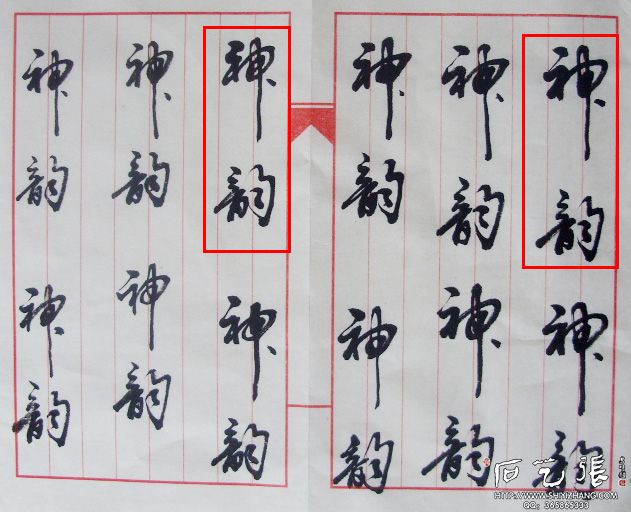 神韵神韵
神韵神韵
神韵神韵
神韵神韵
神韵神韵
神韵神韵
石艺張
HTTP://WWW.SHIYIZHANG.COM
QQ: 365865333